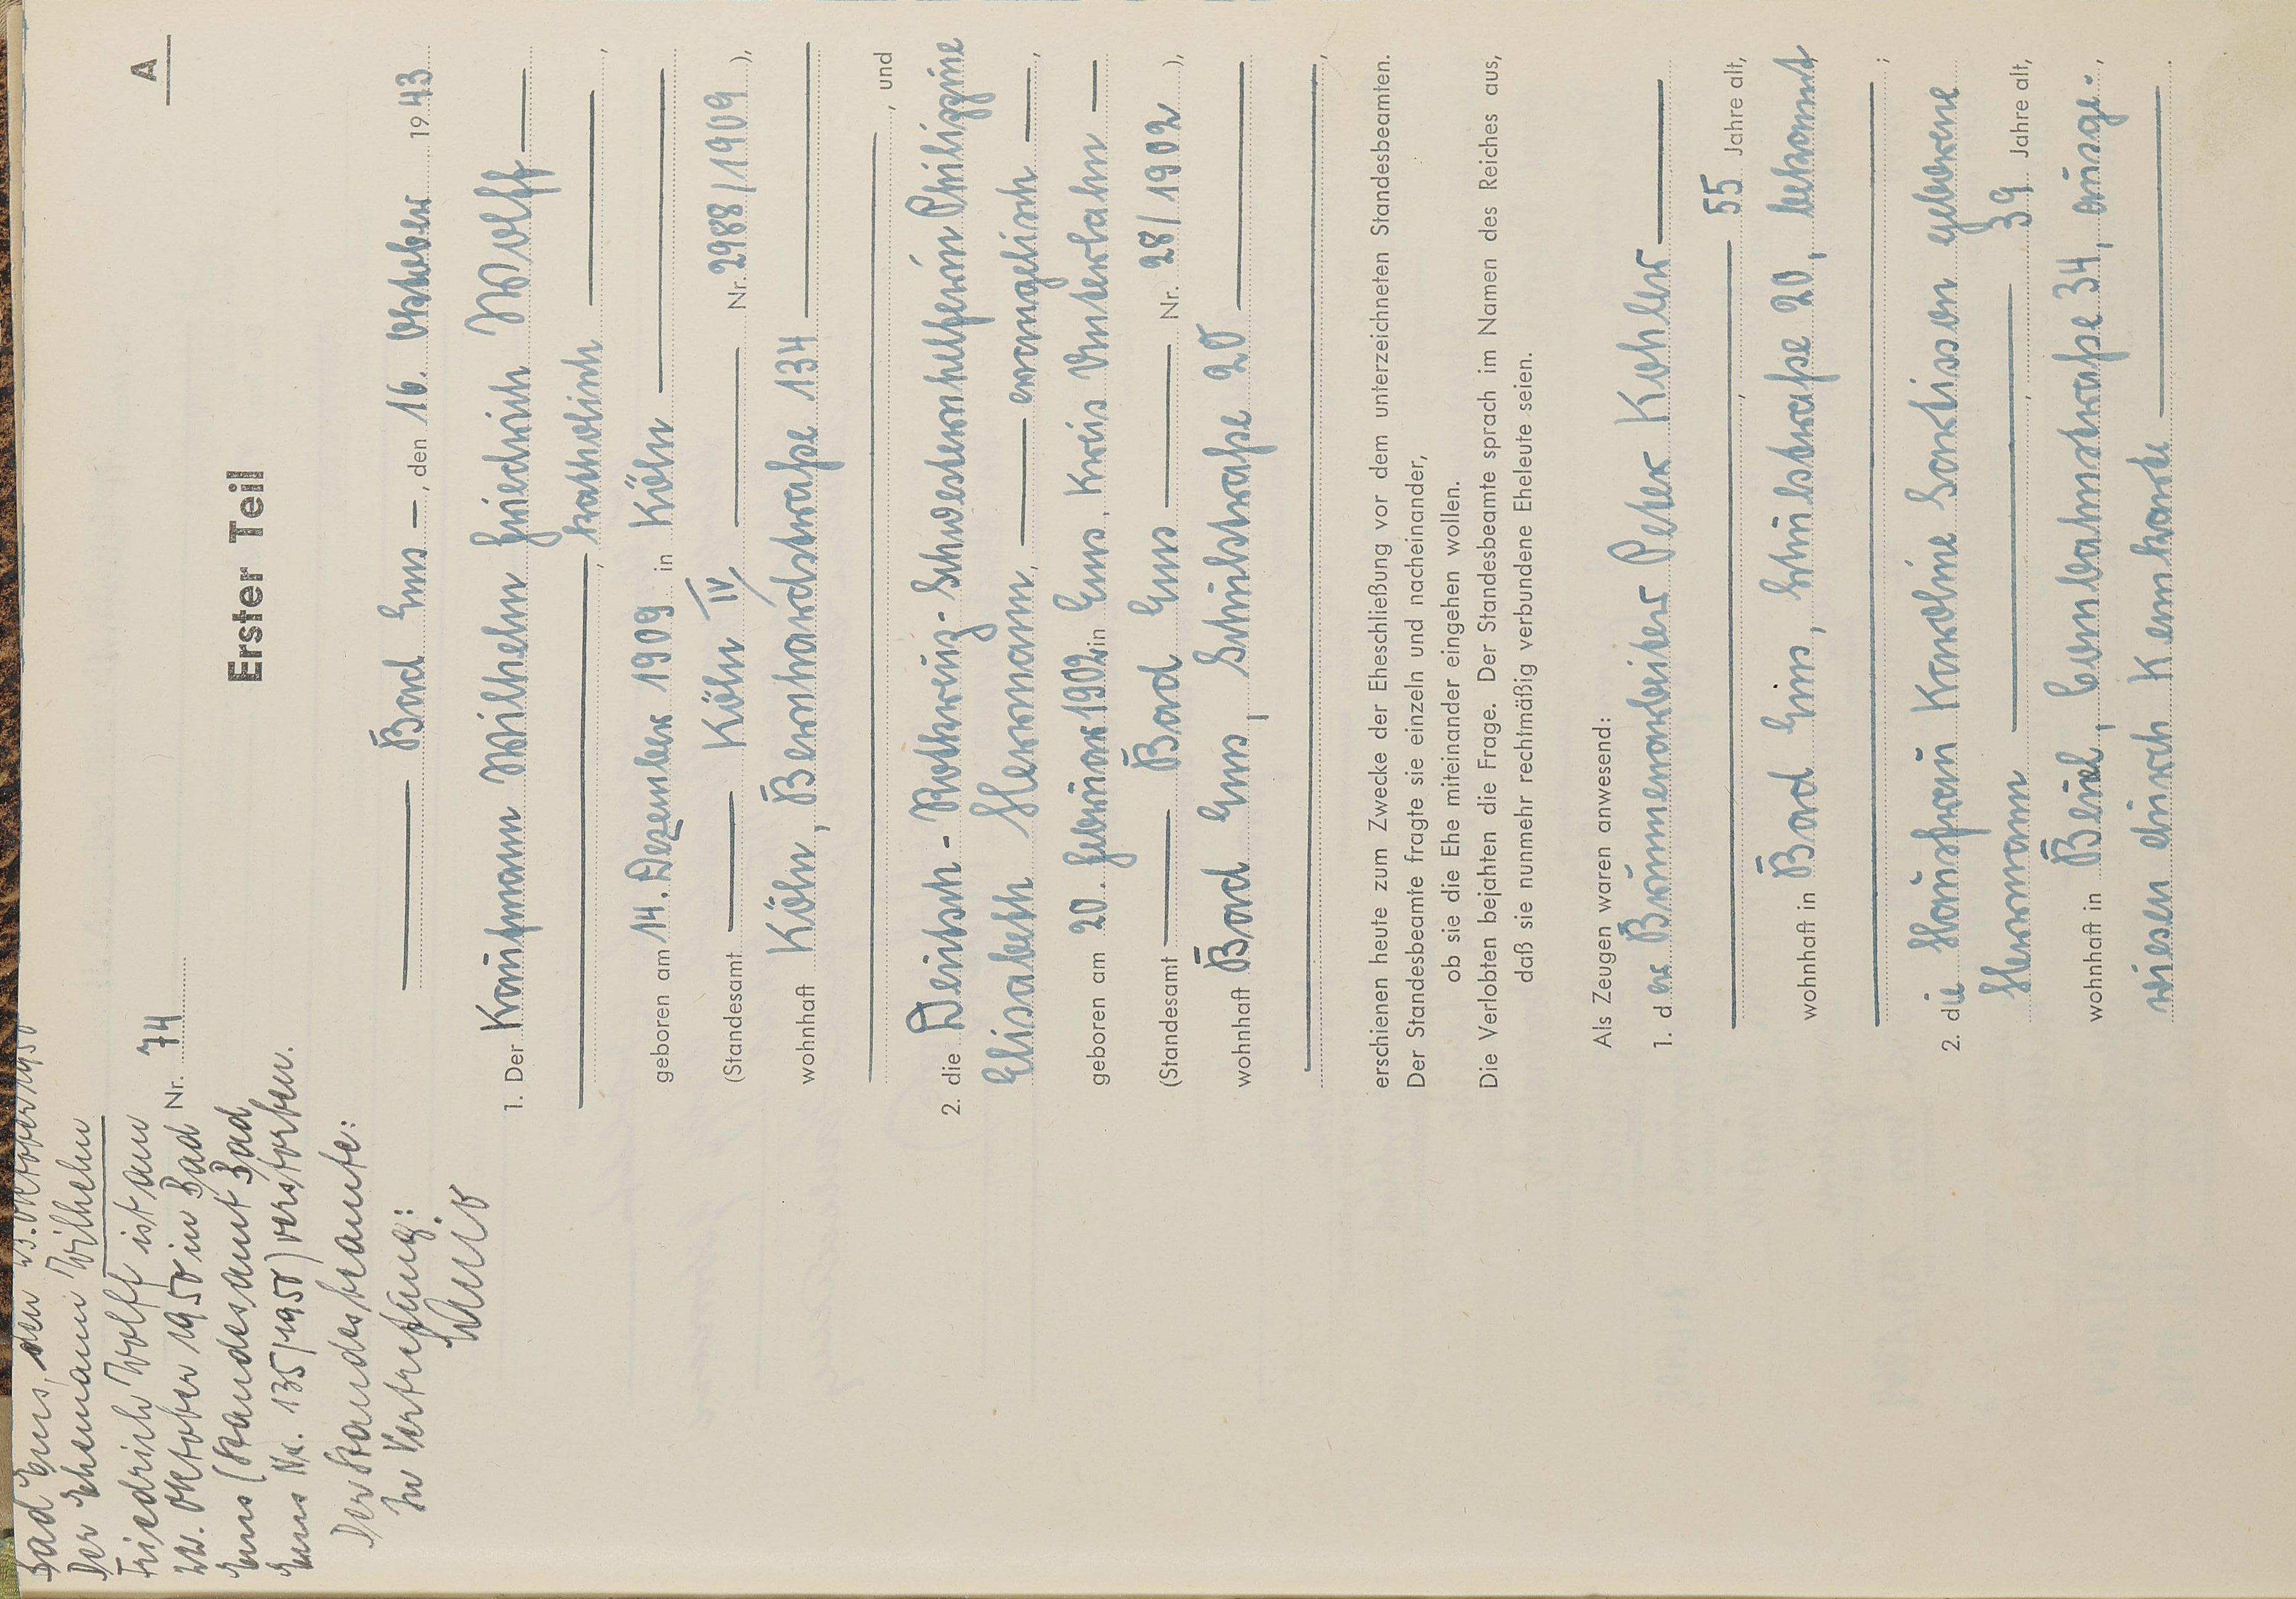 A
Erster Teil
Nr. 74
Bad Ems, den 16. Oktober 1943
1. Der Kaufmann Wilhelm Friedrich Wolff
, katholisch ,
geboren am 14. Dezember 1909 in Köln
(Standesamt Köln IV Nr. 2988/1909 ),
wohnhaft Köln, Bernhardstraße 134
, und
2. die Deutsch-Rothkreuz-Schwesternhelferin Philippine
Elisabeth Hermann, evangelisch ,
geboren am 20. Februar 1902 in Ems, Kreis Unterlahn
(Standesamt Bad Ems Nr. 28/1902 ),
wohnhaft Bad Ems, Schulstraße 20
,
erschienen heute zum Zwecke der Eheschließung vor dem unterzeichneten Standesbeamten.
Der Standesbeamte fragte sie einzeln und nacheinander,
ob sie die Ehe miteinander eingehen wollen.
Die Verlobten bejahten die Frage. Der Standesbeamte sprach im Namen des Reiches aus,
daß sie nunmehr rechtmäßig verbundene Eheleute seien.
Als Zeugen waren anwesend:
1. der Brunnenarbeiter Peter Kohler
, 55 Jahre alt,
wohnhaft in Bad Ems, Schulstraße 20, bekannt
;
2. die Hausfrau Karoline geborene
Hermann , 39 Jahre alt,
wohnhaft in Beuel, Combahnstraße 34, ausge-,
wiesen durch Kennkarte .
Bad Ems, den 23. Oktober 1950
Der Ehemann Wilhelm
Friedrich Wolff ist am
22. Oktober 1950 in Bad
Ems (Standesamt Bad
Ems Nr. 135/1950) verstorben.
Der Standesbeamte:
In Vertretung: